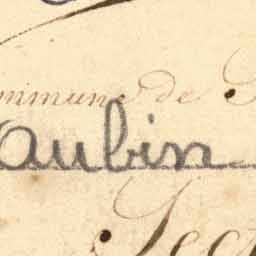 ommune de S
aubin
Sec